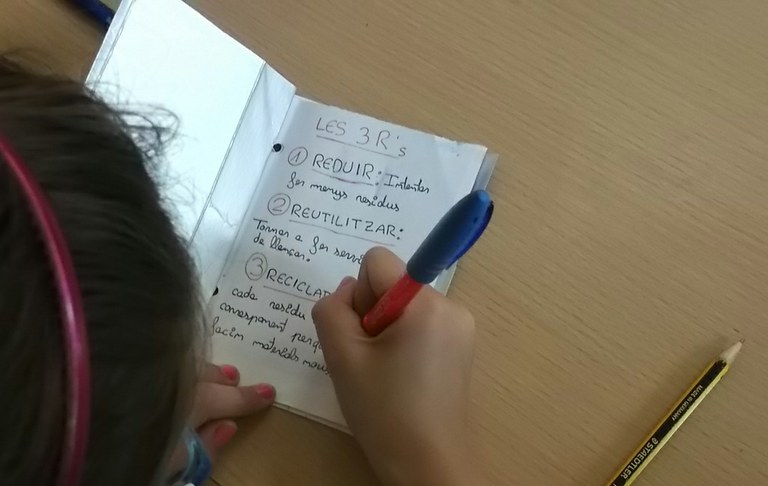 LES 3R's
① REDUIR: Intentar
fer menys residus
② REUTILITZAR:
Tornar a fer servir
de llençar.
③ RECICLAR
cada residu
corresponent perquè
facin materials nous.
MADE IN GERMANY
STAEDTLER